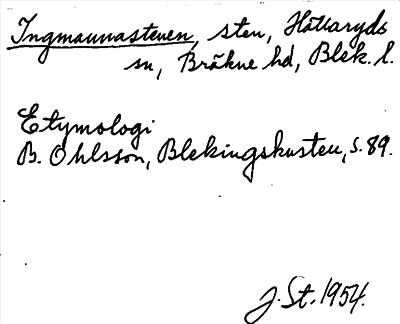 Ingmannastenen, sten, Hällaryds
sn, Bräkne hd, Blek. l.
Etymologi
B. Ohlsson, Blekingskusten, s. 89.
J. St. 1954.